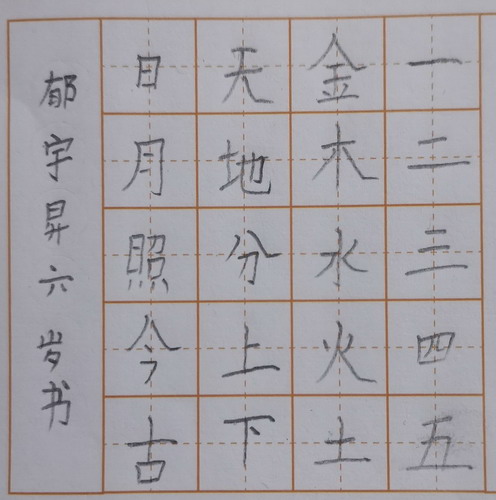 一二三四五
金木水火土
天地分上下
日月照今古
郁宇昇六岁书